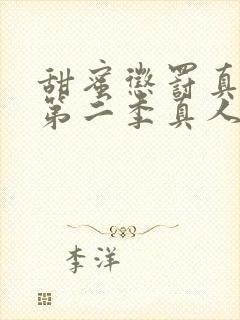 甜蜜惩罚真
第二季真人
李洋